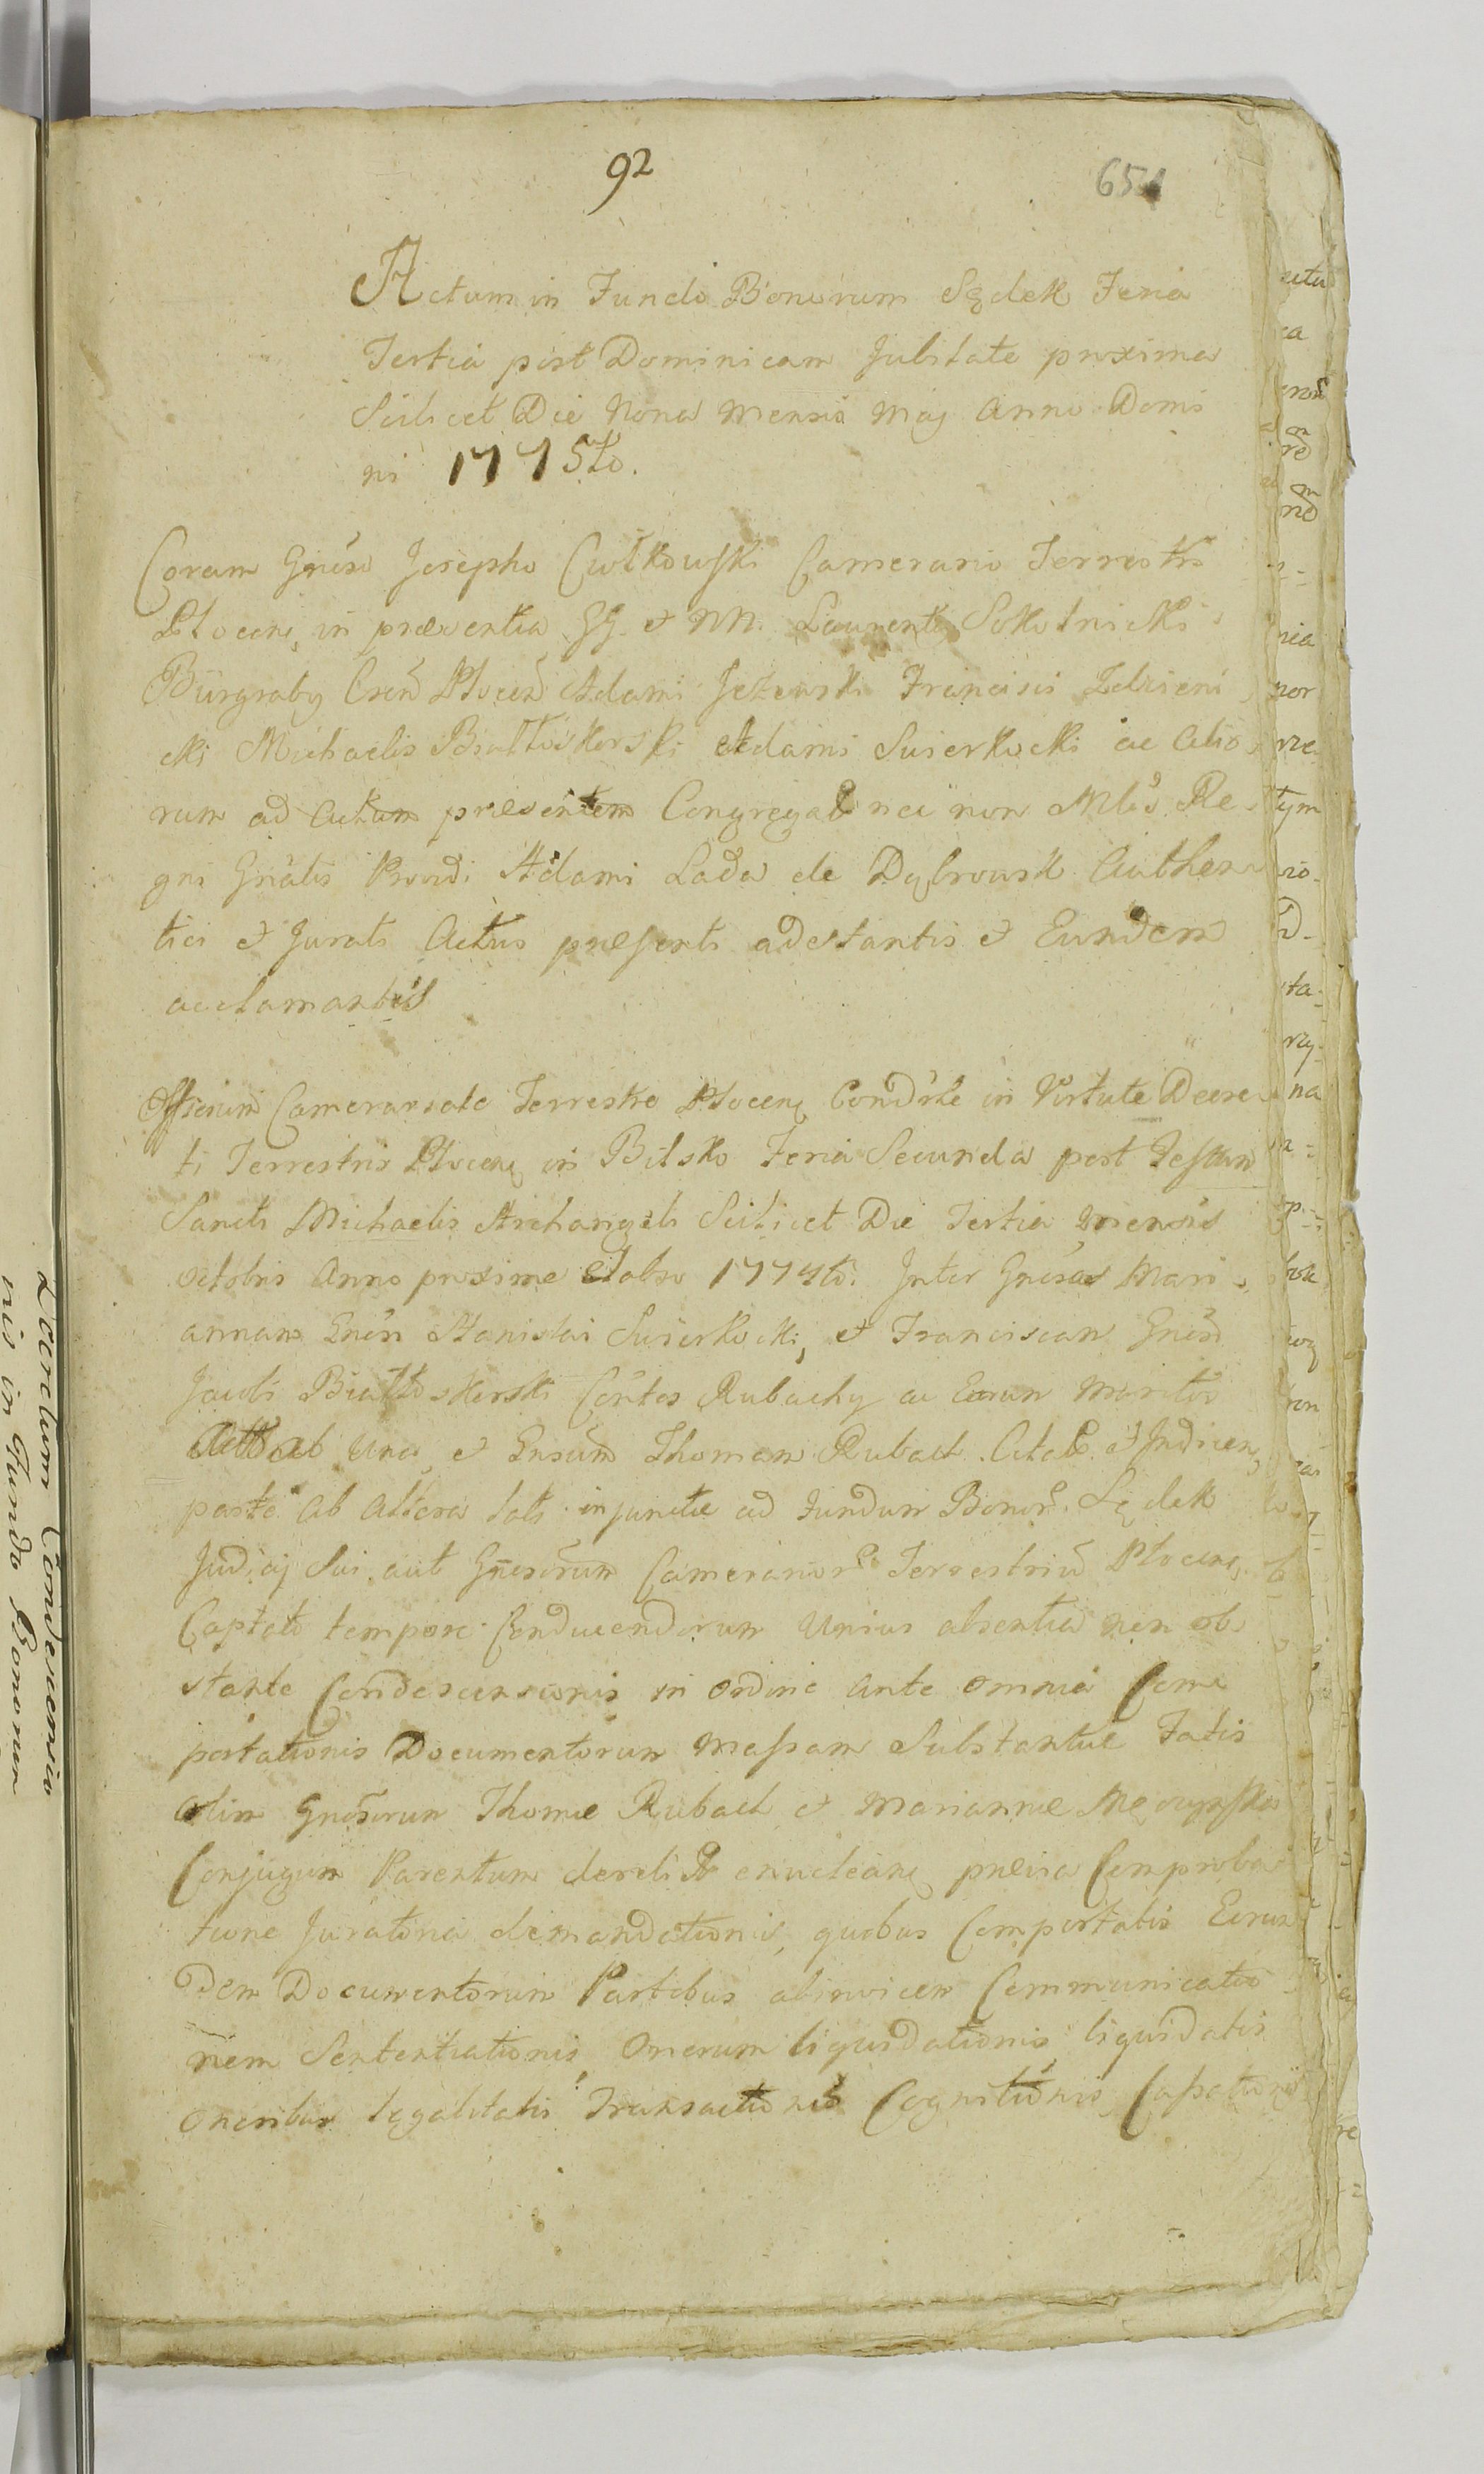 92
651
Actum in Fundo Bonorum Sędek Feria
Tertia post Dominicam Jubilate proxima
Scilicet Die Nona Mensis Maj Anno Domi
ni 1775to.
Coram Gnēso Josepho Ciołkowski Camerario Terrestri
Plocen, in præsentia GG. et NN. Laurentij Sokolnicki
Burgraby Csēn Plocen Adami Jeżewski Francisci Zdzieni
cki Michaelis Białłoskorski Adami Swierkocki ac Alio
rum ad Actum præsentem Congregat nec non Mlis Re-
gni Gnālis Adami Lada de Dąbrowsk Authen
tici et Jurati Actus præsenti adstantis et Eundem
acclamantis
Officium Camerariale Terrestre Plocen in Virtute Decre
ti Terrestris Plocen in Bilsko Feria Secunda post Festum
Sancti Michaelis Archangeli Scilicet Die Tertia Mensis
Octobris Anno proxime Elabso 1774to. Inter Gnēsas Mari
annam Gnēsi Stanislai Swierkocki, et Franciscam Gnēsi
Jacobi Białłoskorski Cōntes Rubachy ac Earum Maritos
Act ab Una, et Gnēsum Thomam Rubach Citat. et
parte ab Altera lati injunctæ ad Fundum Bonor. Sędek
Judicij Sui aut Gnēsorum Camerarior Terrestrium Plocen.
Captato tempore Conducendorum Unius absentia non ob
stante Condescensionis in Ordine Ante Omnia Com
portationis Documentorum Massam Substantiæ Fatis
Olim Gnēsorum Thomæ Rubach et Mariannæ
Conjugum Parentum derelict enucleans prævia Comproba
tione Juratoria demandationis, quobus Comportatis Eorun
dem Documentorum Partibus abinvicem Communicatio
nem Sententiationis Onerum liquidationis liquidatis
Oneribus legalitatis Transactionis Cognitionis Cassationis
Locatum Condescensio
nis in Fundo Bonorum